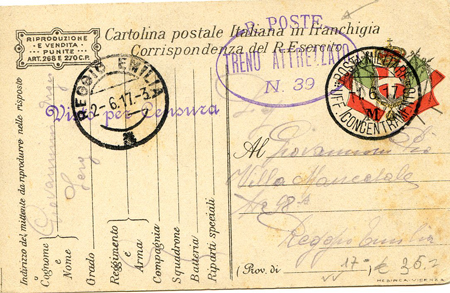 RIPRODUZIONE
E VENDITA
PUNITE
ART. 268 E 270 C.P.
Cartolina postale Italiana in franchigia
Corrispondenza del R. Esercito
R. POSTE
TRENO ATTREZZATO
N. 39
REGGIO EMILIA
2-6.17-3
POSTA MILITARE
1.6.17
UFF. CONCENTRAMENTO
Verificato per Censura
Indirizzo del mittente da riprodurre nelle risposte
Cognome e Nome
Grado
Reggimento e Arma
Compagnia
Squadrone
Batteria
Riparti speciali
Al Giovannini Pio
Villa Mancasale
Reggio Emilia
(Prov. di